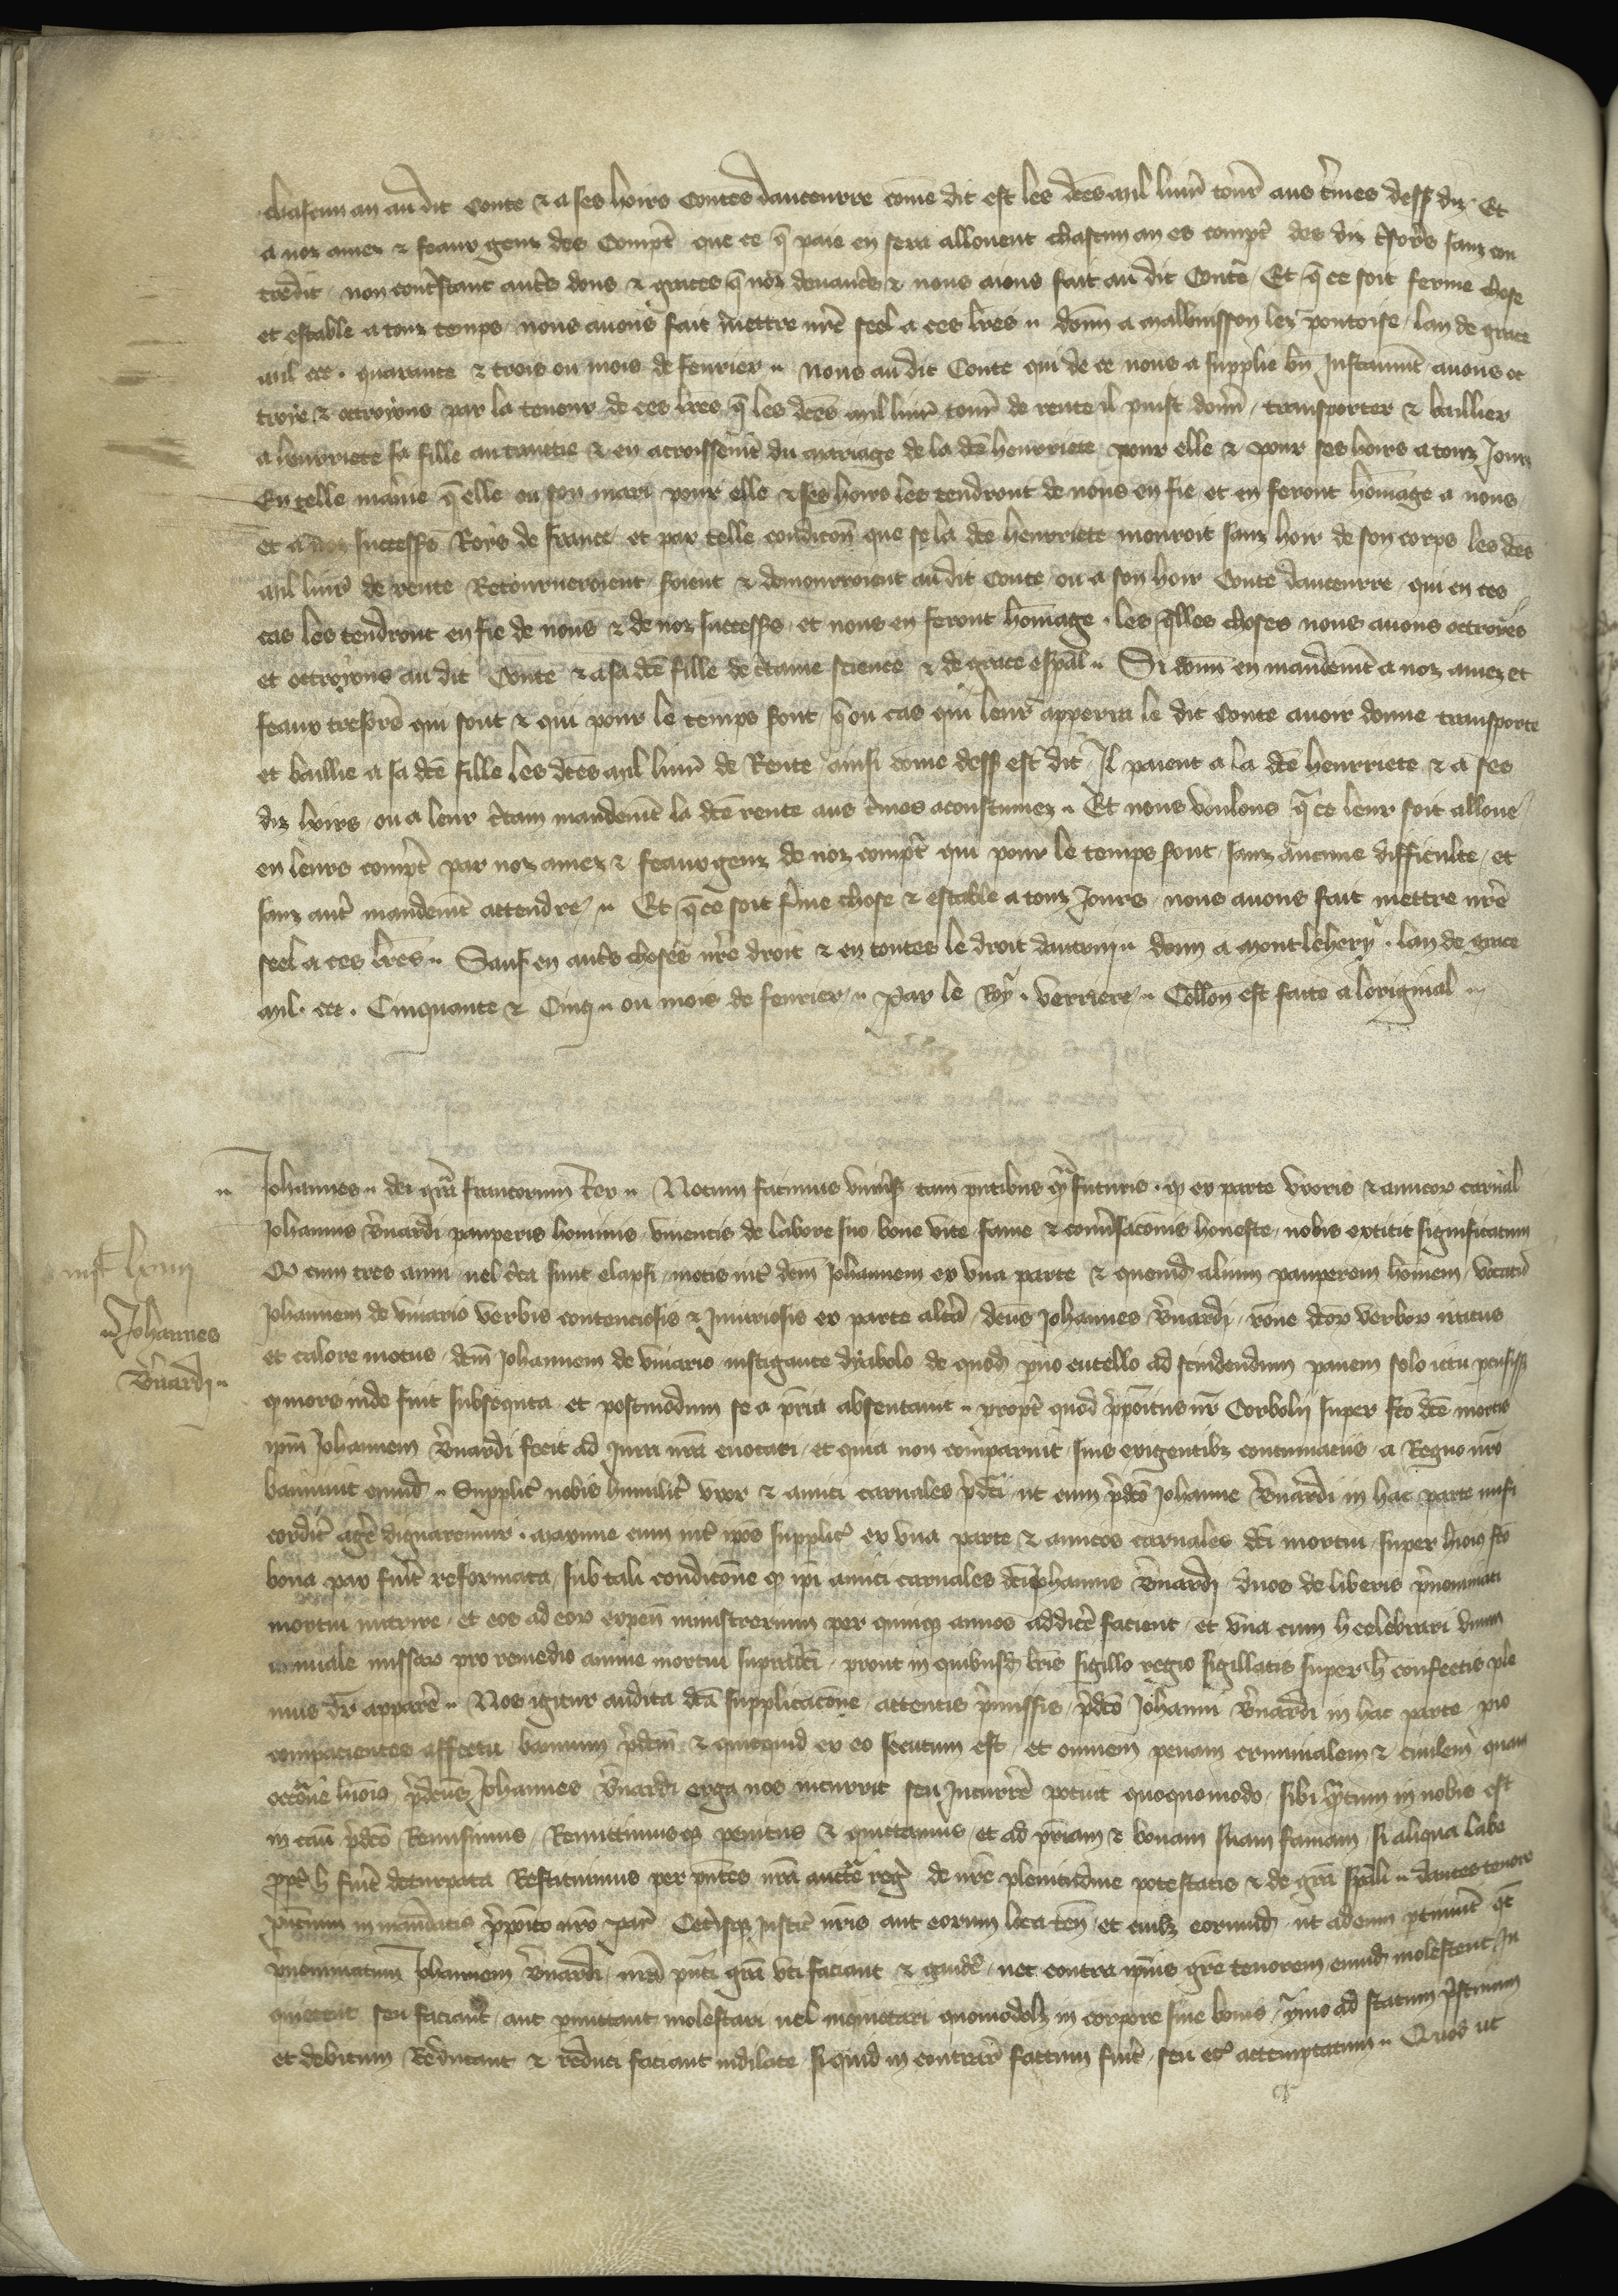 chascun an au dit Conte & a ses hoirs Contes dauceurre cõme dit est les dc̃es mil liur̃ tour̃ aus t̃mes dess diz. Et
a noz amez & feaux genz des Compt̃ que ce q̃ paie en sera allouent chascun an es compt̃ des diz t̃sor̃s sanz con
tredit, non contr̃stant autr̃s dons & graces q̃ noz deuanc̃rs & nous aions fait au dit Conte, Et q̃ ce soit ferme chose
et estable a touz temps, nous auons fait mettre nr̃e seel a ces lr̃es. donn̄ a Malbuisson lez pontoise, lan de grace
mil ccc. quarante & trois ou mois de feurier. Nous au dit Conte qui de ce nous a supplie bñ Instaumt̃ auons oc
troie & octroions par la teneur de ces lr̃es q̃ les dc̃es mil liur̃ tour̃ de rente il puist donr̃, transporter & baillier
a henrriete sa fille au tanctie & en acroissemt̃ du mariage de la dc̃e henrriete pour elle & pour ses hoirs a touz Jours
En telle mañie q̃ elle ou son mari pour elle & ses hoirs les tendront de nous en fie et en feront hom̃age a nous
et a noz success̃ Roys de France, et par telle condicõn que se la dc̃e henrriete mouroit sanz hoir de son corps les dc̃es
mil liur̃ de rente Retourneroient, soient & demourroient au dit Conte, ou a son hoir Conte dauceurre, qui en ces
cas les tendront en fie de nous & de noz success̃, et nous en feront hom̃age. les q̃lles choses nous auons octroiées
et octroions au dit Conte & a sa dc̃e fille de c̃taine science & de grace esp̃al. Si donn̄ en mandemt̃ a noz amez et
feaux tresor̃s qui sont & qui pour le temps sont, q̃ ou cas qui leur apperra le dit Conte auoir donne transporte
et baillie a sa dc̃e fille les dc̃es mil liur̃ de Rente ainsi cõme dess est dit, Il paient a la dc̃e henrriete & a ses
diz hoirs, ou a leur c̃tain mandemt̃ la dc̃e rente aus t̃mes acoustumez. Et nous voulons q̃ ce leur soit alloue
en leurs compt̃ par noz amez & feaux genz de noz compt̃ qui pour le temps sont, sanz aucune difficulte, et
sanz autr̃ mandemt̃ attendre. Et q̃ ce soit f̃me chose & estable a touz Jours, nous auons fait mettre nr̃e
seel a ces lr̃es. Sauf en autr̃s choses nr̃e droit & en toutes le droit dautruy. donn̄ a Montlehery. lan de grace
mil. ccc. Cinquante & Cinq. ou mois de feurier. Par le Roy. verriere. Coll̃on est faite a loriginal.
Johannes. dei gr̃a francorum Rex. Notum facimus vniũsis tam pñtibus q̃ futuris. q̃ ex parte vxoris & amicor̃ carnal̃
Johannis B̃nardi pauperis hominis, viuentis de labore suo bone vite fame & conũsacõnis honeste, nobis extitit significatum
Q̃ cum tres anni uel c̃ca sunt elapsi, motis int̃ dc̃m Johannem ex vna parte & quemd̃ alium pauperem hominem, vocatũ
Johannem de viuario verbis contenciosis & Iniuriosis ex parte alt̃a, dc̃us Johannes B̃nardi, rõne dc̃or̃ verbor̃ iratus
et calore motus, dc̃m Johannem de viuario instigante dyabolo de quod̃ p̃uo cutello ad scindendum panem solo ictu pcussit
q̃ mors inde fuit subsequta, et postmodum se a pr̃ia absentauit. propt̃ quod p̃poitus nr̃ Corbolij super fc̃o dc̃e mortis
ip̃m Johannem B̃nardi fecit ad Iura nr̃a euocari, et quia non comparuit, suis exigentibz contumaciis, a Regno nr̃o
banniuit eumd̃. Supplic̃ nobis humilit̃ vxor & amici carnales p̃dc̃i, ut cum p̃dc̃o Johanne B̃nardi in hac parte misi
cordit̃ agr̃e dignaremur. Maxime cum int̃ ip̃os supplic̃ ex vna parte & amicos carnales dc̃i mortui, super huiꝰ fc̃o
bona pax fuit̃ reformata, sub tali condicõne q̃ ip̃i amici carnales dc̃i Johannis B̃nardi duos de liberis p̃nominati
mortui nutrire, et eos ad eor̃ expen̄ ministrerium per quinq̃ annos addicr̃e facient, et vna cum h̃ celebrari vnum
annuale missar̃ pro remedio anime mortui supradc̃i, prout in quibusd̃ lr̃is sigillo regio sigillatis super h̃ confectis ple
nius dr̃ apparer̃e. Nos igitur audita dc̃a supplicacõne, attentis p̃missis, p̃dc̃o Johanni B̃nardi in hac parte, pio
compacientes affectu, bannum p̃dc̃m & quicquid ex eo secutum est, et omnem penam criminalem & ciuilem quam
occõne huiꝰ p̃dc̃us Johannes B̃nardi erga nos incurrit seu Incurrr̃e potuit quoquomodo, sibi q̃ntum in nobis est
in casũ p̃dc̃o Remisimus, Remittimusq̃ penitus & quittamus, et ad pr̃iam & bonam suam famam, si aliqua labe
propt̃ h̃ fuit̃ deturpata Restituimus per pñtes nr̃a auct̃e reg̃ de nr̃e plenitudine potestatis & de gr̃a sp̃ali. dantes tenore
pñcium in mandatis p̃poito nr̃o Par̃ Cet̃isq̃ Justic̃ nr̃is aut eorum loca ten̄, et cuilz eorumd̃, ut ad eum ptinuit̃ q̃t
p̃nominatum Johannem B̃nardi nr̃a pñti gr̃a vti faciant & gaudr̃e, nec contra ip̃ius gr̃e tenorem eumd̃ molestent, In
quietent seu faciant, aut p̃mittant molestari uel inquietari quomodolz in corpore siue bonis, ymo ad statum p̃stinum
et debitum Reducant & reduci faciant indilate, si quid in contrar̃ factum fuit̃, seu et̃ attemptatum. Quod ut
Johannes
B̃nardi.